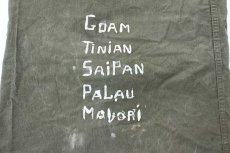 GUAM
TINIAN
SAIPAN
PALAU
MAUORI